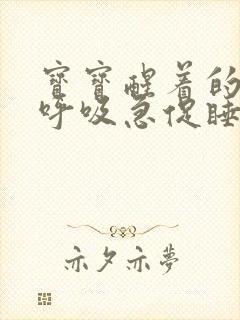 寳寳醒着的
呼吸急促睡
亦夕亦夢